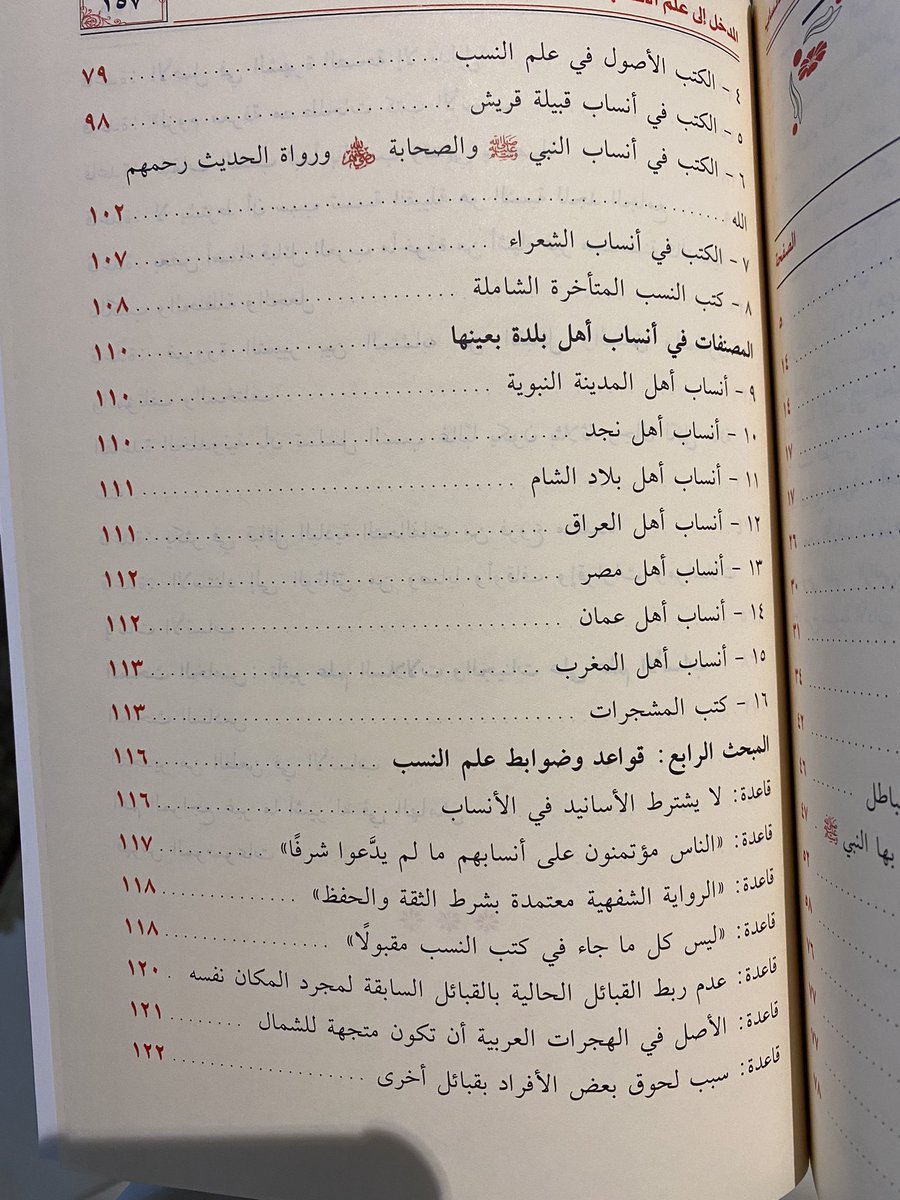 ١٥٧
المدخل إلى علم
٤ - الكتب الأصول في علم النسب ٧٩
٥ - الكتب في أنساب قبيلة قريش ٩٨
٦ - الكتب في أنساب النبي ﷺ والصحابة ورواة الحديث رحمهم
الله ١٠٢
٧ - الكتب في أنساب الشعراء ١٠٧
٨ - كتب النسب المتأخرة الشاملة ١٠٨
المصنفات في أنساب أهل بلدة بعينها ١١٠
٩ - أنساب أهل المدينة النبوية ١١٠
١٠ - أنساب أهل نجد ١١٠
١١ - أنساب أهل بلاد الشام ١١١
١٢ - أنساب أهل العراق ١١١
١٣ - أنساب أهل مصر ١١٢
١٤ - أنساب أهل عمان ١١٢
١٥ - أنساب أهل المغرب ١١٣
١٦ - كتب المشجرات ١١٣
المبحث الرابع: قواعد وضوابط علم النسب ١١٦
قاعدة: لا يشترط الأسانيد في الأنساب ١١٦
قاعدة: «الناس مؤتمنون على أنسابهم ما لم يدَّعوا شرفًا» ١١٧
قاعدة: «الرواية الشفهية معتمدة بشرط الثقة والحفظ» ١١٨
قاعدة: «ليس كل ما جاء في كتب النسب مقبولًا» ١١٨
قاعدة: عدم ربط القبائل الحالية بالقبائل السابقة لمجرد المكان نفسه ١٢٠
قاعدة: الأصل في الهجرات العربية أن تكون متجهة للشمال ١٢١
قاعدة: سبب لحوق بعض الأفراد بقبائل أخرى ١٢٢
الصفحة
٥
١٤
١٤
١٧
١٧
٢٦
٣٠
٣١
٣٤
٤٢
٤٦
٤٧
بها النبي ﷺ
٥٢
٥٨